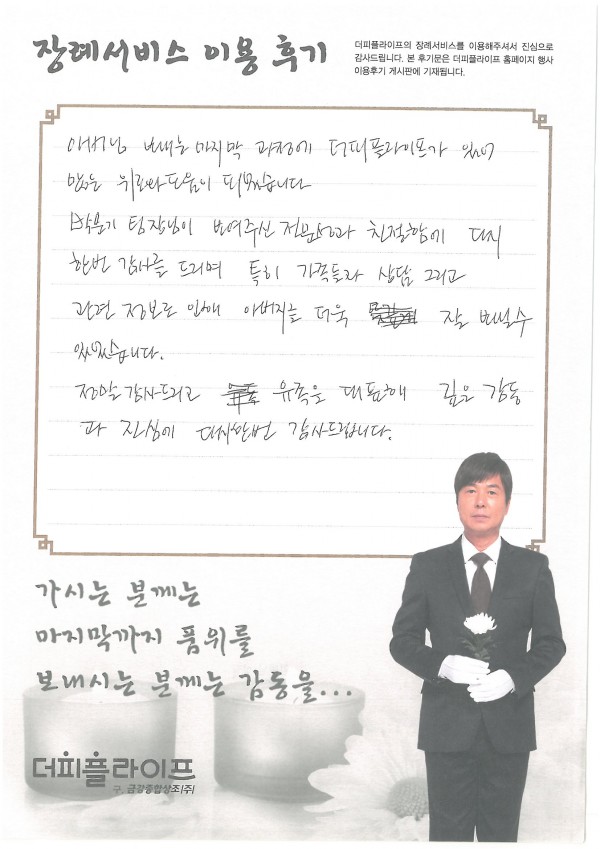 장례서비스 이용 후기
더피플라이프의 장례서비스를 이용해주셔서 진심으로
감사드립니다. 본 후기문은 더피플라이프 홈페이지 행사
이용후기 게시판에 기재됩니다.
아버님 보내는 마지막 과정에 더피플라이프가 있어
많은 위로와 도움이 되었습니다
팀장님이 보여주신 전문성과 친절함에 다시
한번 감사를 드리며 특히 가족들과 상담 그리고
관련 정보로 인해 아버지를 더욱 잘 보낼수
있었습니다.
정말 감사드리고 유족을 대표해 깊은 감동
과 진심에 다시한번 감사드립니다.
가시는 분께는
마지막까지 품위를
보내시는 분께는 감동을...
더피플라이프
구. 금강종합상조(주)